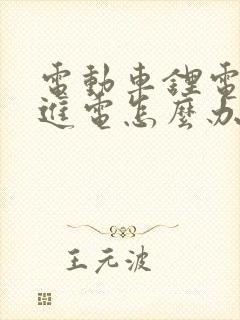 電動車鋰電
進電怎麼办
王元波